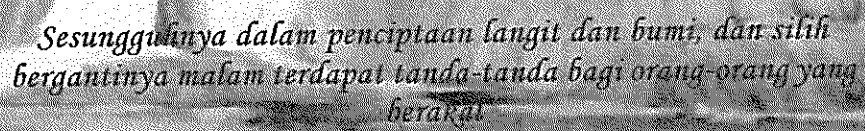 Sesungguhnya dalam penciptaan langit dan bumi, dan silih
bergantinya malam terdapat tanda-tanda bagi orang-orang yang
berakal